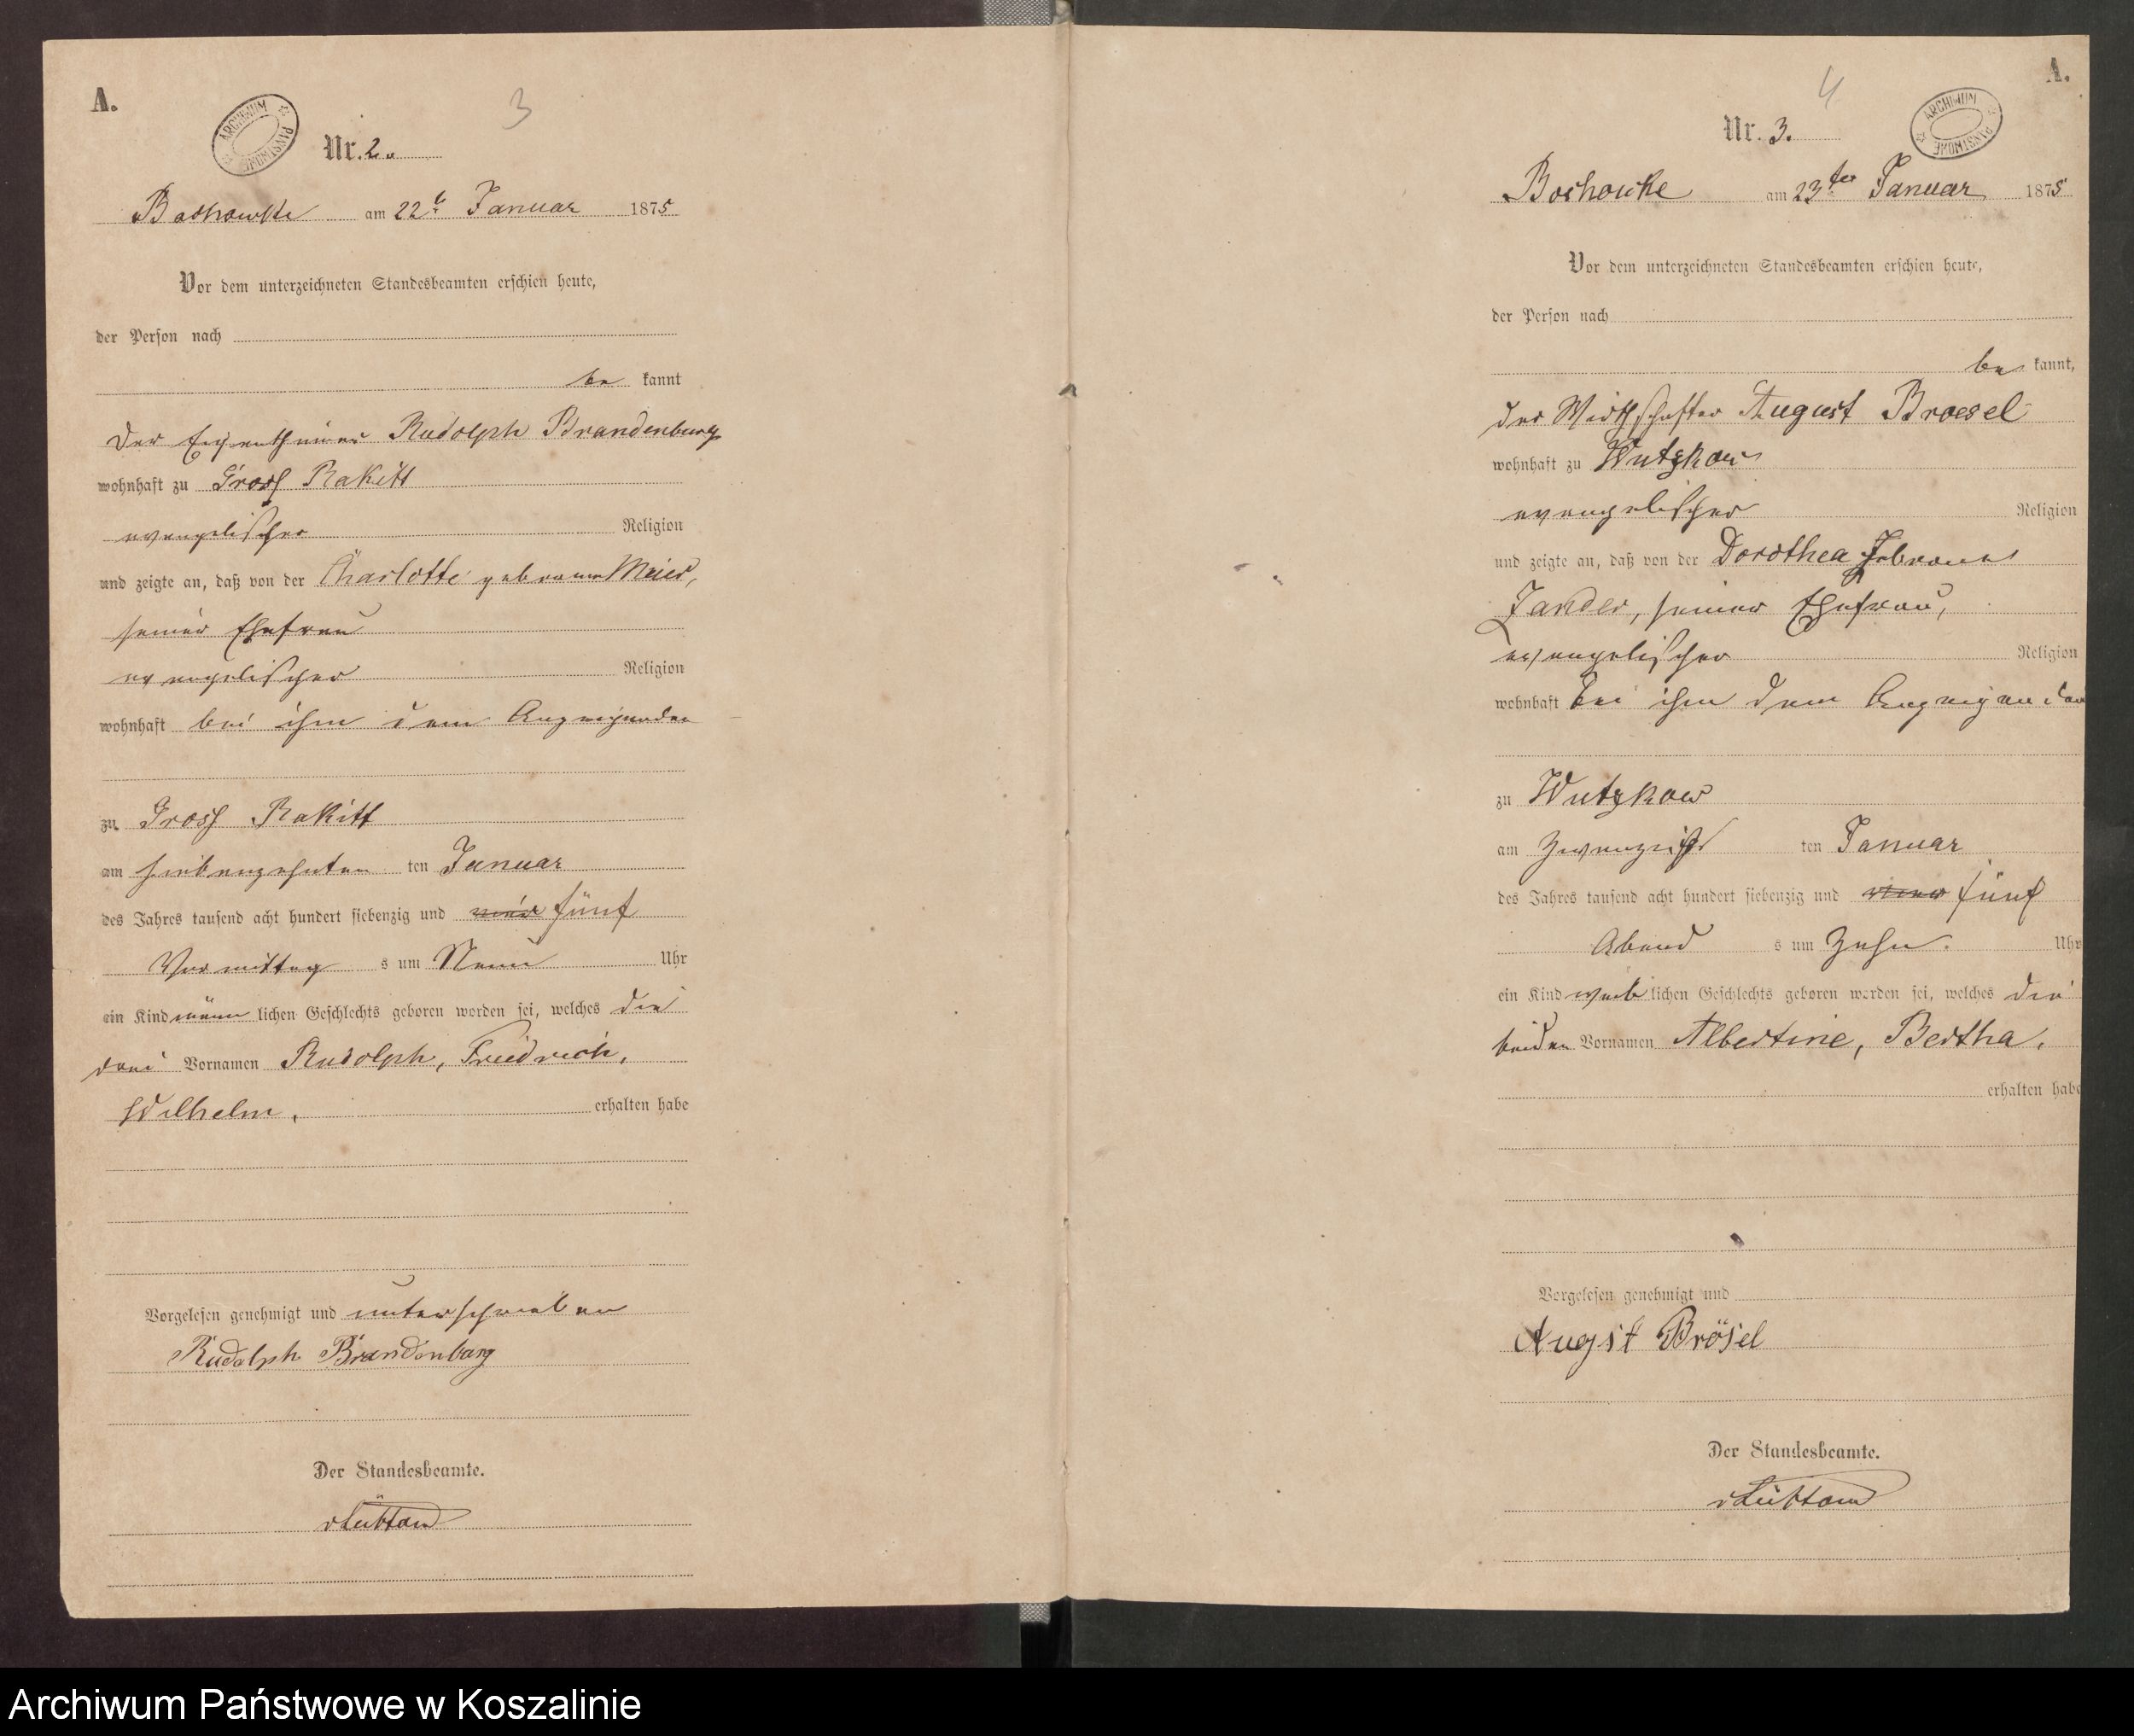 A.
ARCHIWUM PAŃSTWOWE
3
Nr. 2.
Bochowke am 22t Januar 1875
Vor dem unterzeichneten Standesbeamten erschien heute,
der Person nach
be kannt
Der Eigenthümer Rudolph Brandenburg
wohnhaft zu Gross Rakitt
evangelischer Religion
und zeigte an, daß von der Charlotte geborene Meier,
seiner Ehefrau
evangelischer Religion
wohnhaft bei ihm dem Anzeigenden
zu Gross Rakitt
am siebenzehnten ten Januar
des Jahres tausend acht hundert siebenzig und vier fünf
Vormittag s um Neun Uhr
ein Kind männ lichen Geschlechts geboren worden sei, welches die
drei Vornamen Rudolph, Friedrich,
Wilhelm, erhalten habe
Vorgelesen genehmigt und unterschrieben
Rudolph Brandenburg
Der Standesbeamte.
A.
4
ARCHIWUM PAŃSTWOWE
Nr. 3.
Bochowke am 23ten Januar 1875
Vor dem unterzeichneten Standesbeamten erschien heute,
der Person nach
be kannt,
der Wirthschafter August Broesel
wohnhaft zu Wutzkow
evangelischer Religion
und zeigte an, daß von der Dorothea geborene
Zander, seiner Ehefrau,
evangelischer Religion
wohnhaft bei ihm dem Anzeigenden
zu Wutzkow
am Zwanzigst ten Januar
des Jahres tausend acht hundert siebenzig und vier fünf
Abend s um Zehn. Uhr
ein Kind weib lichen Geschlechts geboren worden sei, welches die
beiden Vornamen Albertine, Bertha,
erhalten habe
Vorgelesen genehmigt und
Augist Brösel
Der Standesbeamte.
Archiwum Państwowe w Koszalinie